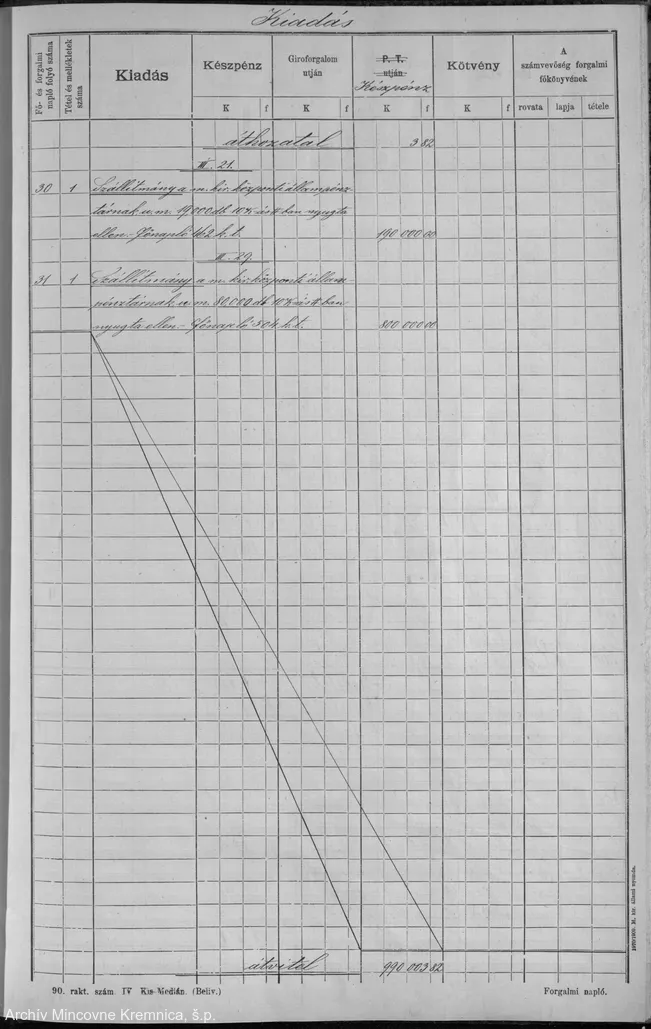 Kiadás
Fő- és forgalmi napló folyó száma
Tétel és mellékletek száma
Kiadás
Készpénz
Giroforgalom utján
P. T. utján
Készpénz
Kötvény
A számvevőség forgalmi főkönyvének
K f K f K f K f rovata lapja tétele
áthozatal 3 82
III. 21.
30 1 Szállítmány a m. kir. központi állampénz-
tárnak u. m. 19000 db 10 K ás ban nyugta
ellen.- Főnapló 462 k. t. 190 000 00
III. 29.
31 1 Szállítmány a m. kir. központi állam-
pénztárnak u. m. 80,000 db 10 K ás ban
nyugta ellen.- Főnapló 504 k. t. 800 000 00
átvitel 990 003 82
90. rakt. szám. IV Kis-Medián. (Beliv.)
Forgalmi napló.
M. kir. állami nyomda.
Archív Mincovne Kremnica, š.p.